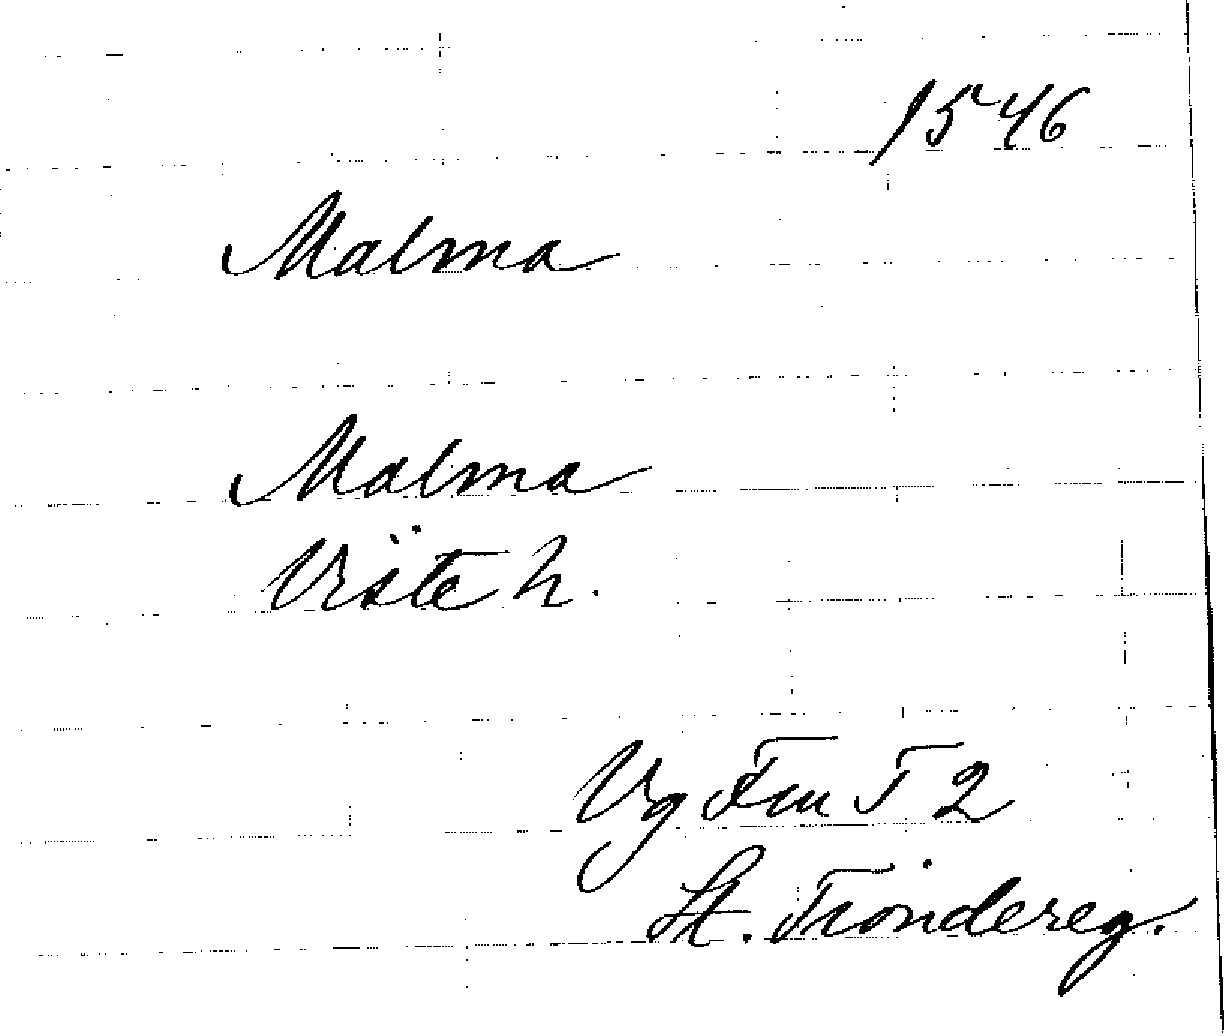 1546
Malma
Malma
Viste h.
Vg T 2
St. Tiondereg.